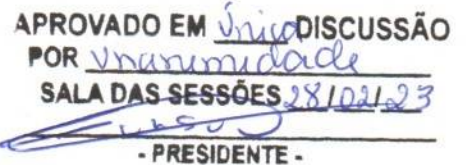 APROVADO EM Única DISCUSSÃO
POR Unanimidade
SALA DAS SESSÕES 28/02/23
- PRESIDENTE -